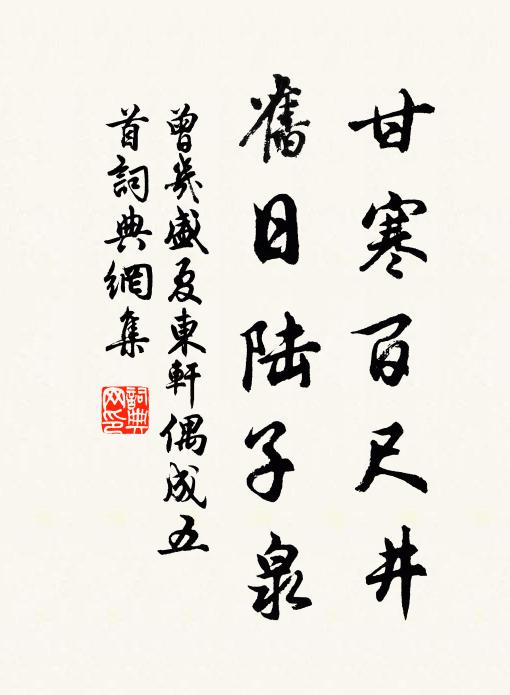 甘寒百尺井
舊日陆子泉
曾幾盛夏東軒偶成五
首詞典網集
詞典
网印